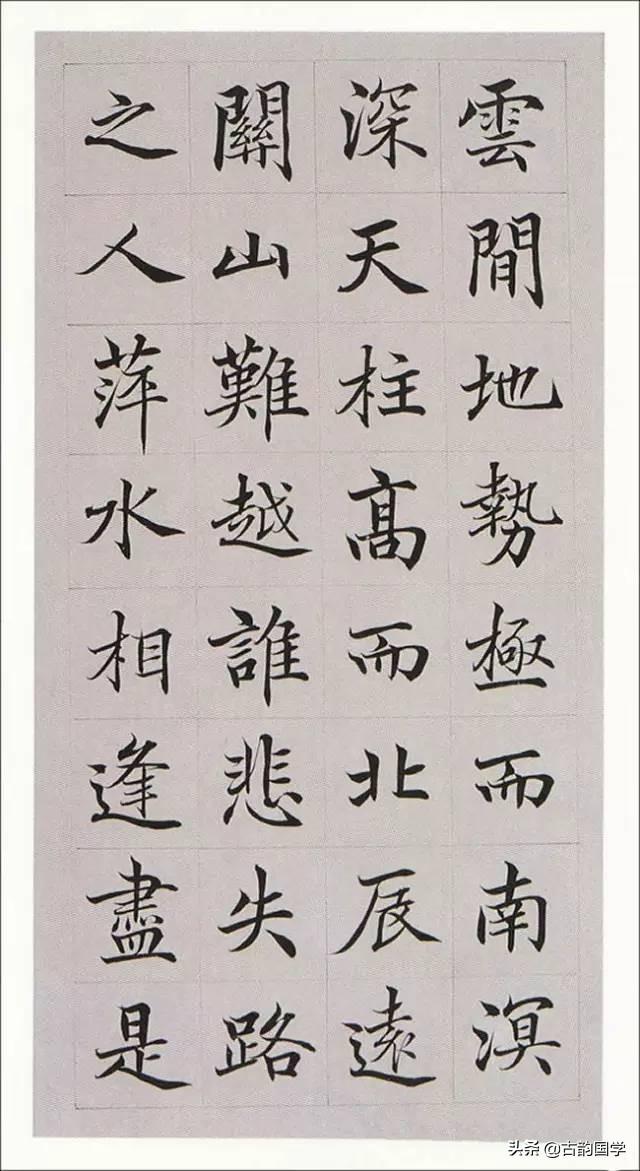 雲間地勢極而南溟
深天柱高而北辰遠
關山難越誰悲失路
之人萍水相逢盡是
头条 @古韵国学